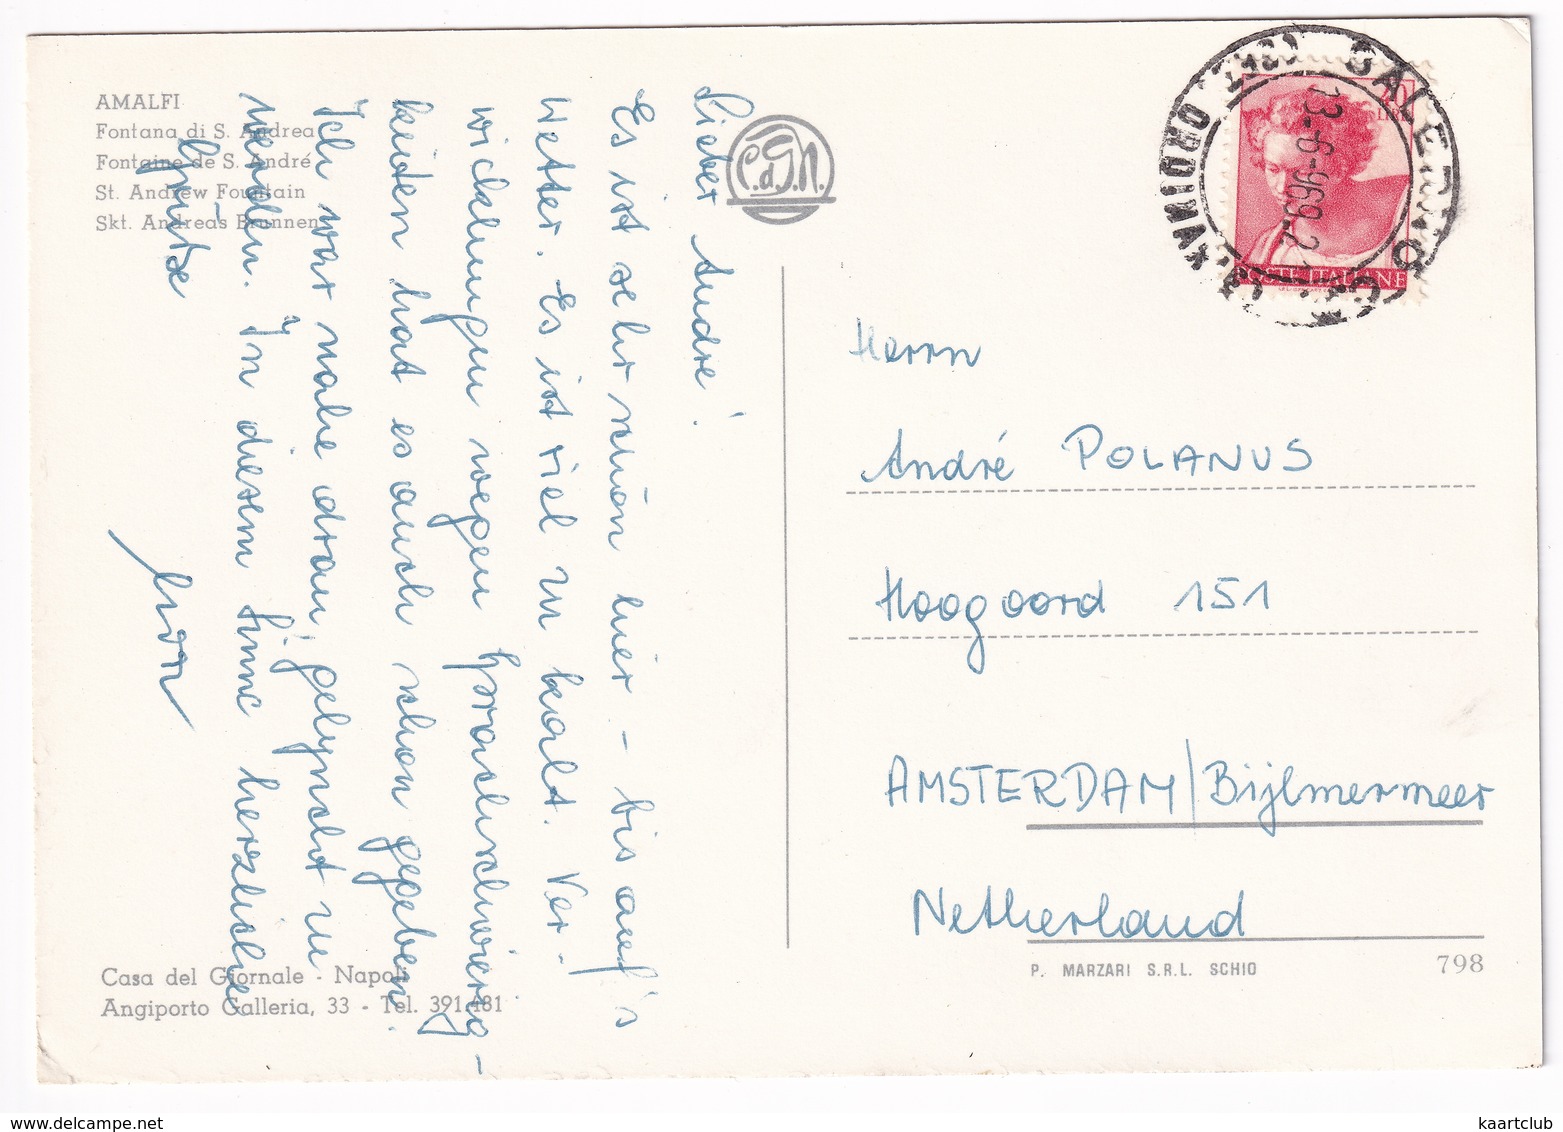 AMALFI
Fontana di S. Andrea
Fontaine de S. André
St. Andrew Fountain
Skt. Andreas Brunnen
Lieber André!
Es ist sehr schön hier - bis auf's
Wetter. Es ist viel zu kalt. Ver-
wicklungen wegen Sprachschwierig-
keiten hat es auch schon gegeben.
Ich war nahe dran, gelyncht zu
werden. In diesem Sinne herzliche
Grüße
C.d.G.N.
Casa del Giornale - Napoli
Angiporto Galleria, 33 - Tel. 391.481
SALERNO
13-6-969-2
POSTE ITALIANE
Herrn
André POLANUS
Hoogoord 151
AMSTERDAM/Bijlmermeer
Netherland
P. MARZARI S.R.L. SCHIO
798
kaartclub